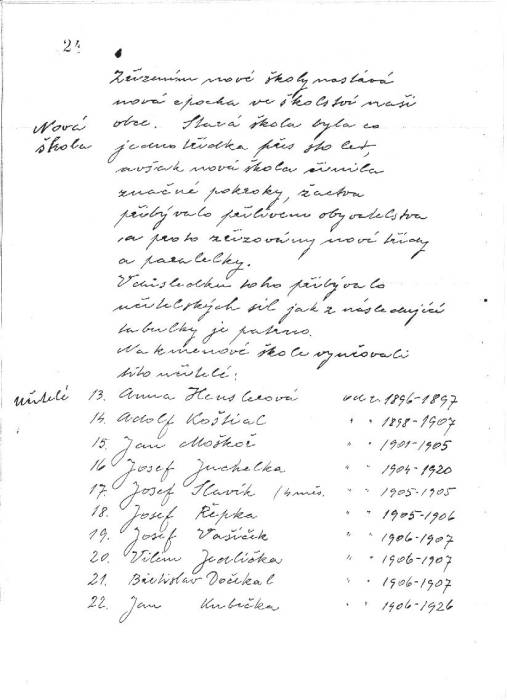 24
Zřízením nové školy nastává
nová epocha ve školství naší
Nová obce. Stará škola byla co
škola jednotřídka přes sto let,
avšak nová škola činila
značné pokroky, žactva
přibývalo přílivem obyvatelstva
a proto zřizovány nové třídy
a paralelky.
V důsledku toho přibývalo
učitelských sil jak z následující
tabulky je patrno.
Na kmenové škole vyučovali
tito učitelé:
učitelé 13. Anna Henslerová od r. 1896-1897
14. Adolf Koštial " " 1898-1907
15. Jan Moškoř " " 1901-1905
16 Josef Juchelka " " 1904-1920
17. Josef Slavík /4 měs. " " 1905-1905
18. Josef Řepka " " 1905-1906
19. Josef Vašíček " " 1906-1907
20. Vilém Jedlička " " 1906-1907
21. Břetislav Dočekal " " 1906-1907
22. Jan Kubička " " 1906-1926